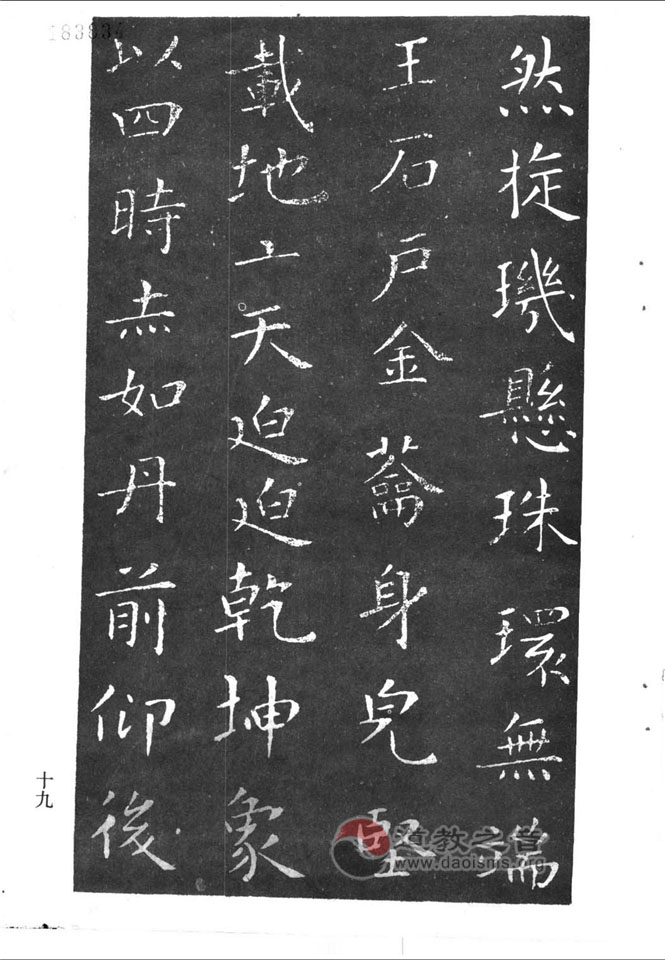 183934
然旋璣懸珠環無端
王石戶金蘥身皃堅
載地亠天迫迫乾坤象
以四時赤如丹前仰後
十九
道教之音
www.daoisms.org